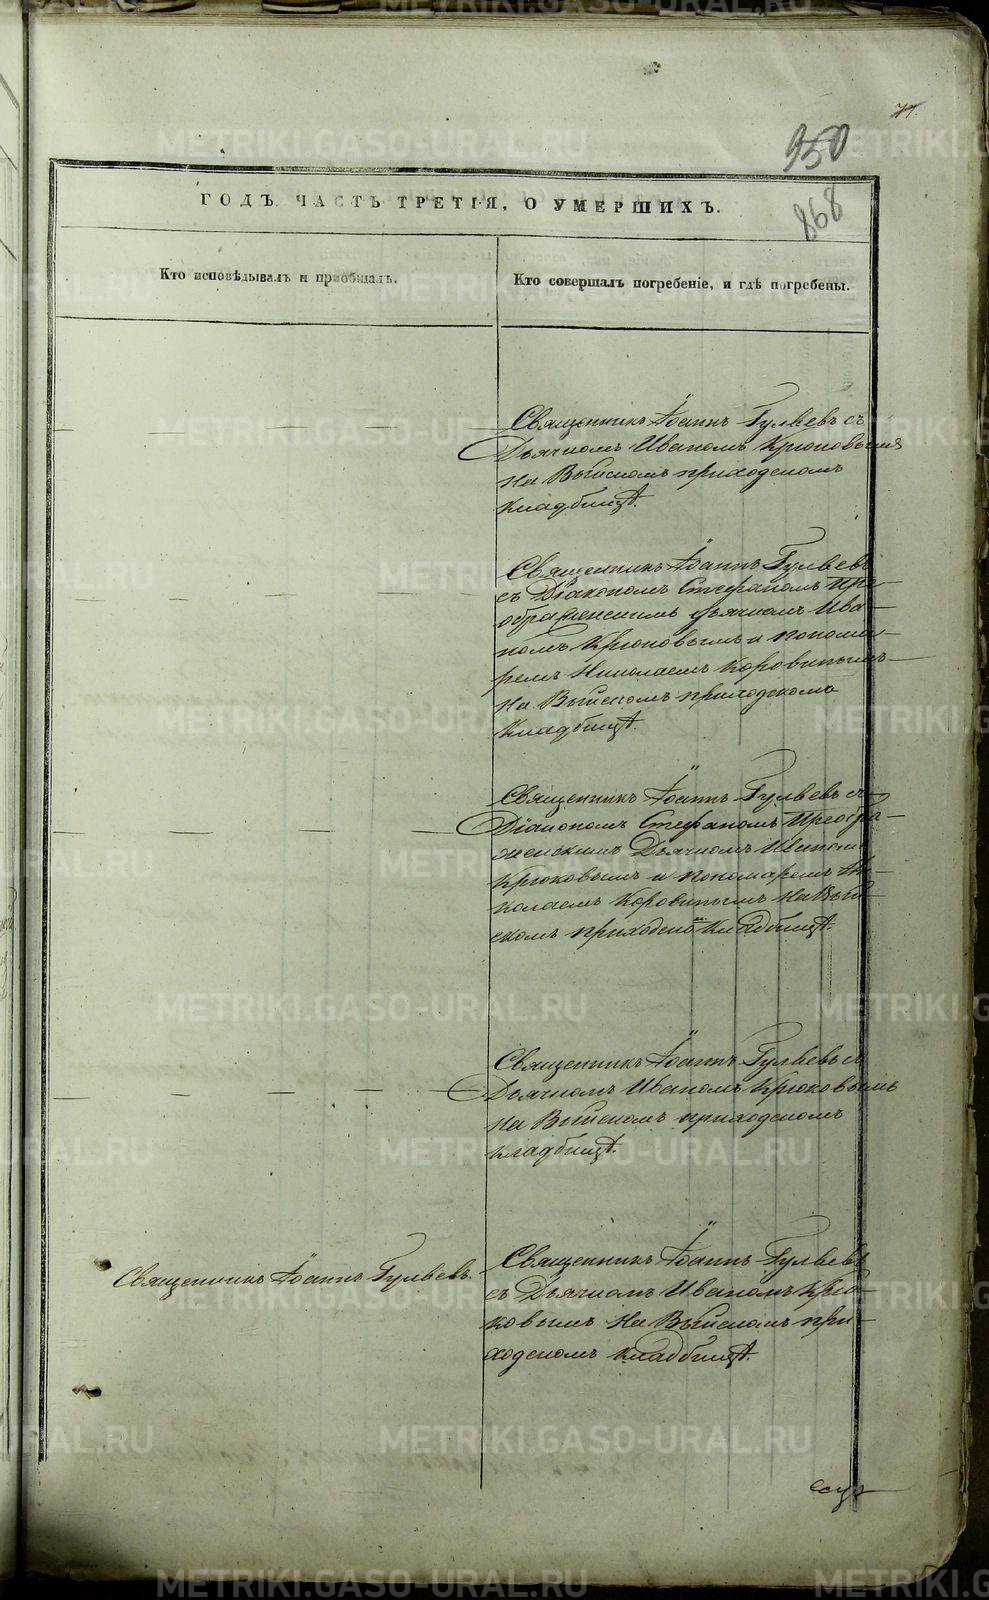 71.
950
868
ГОДЪ. ЧАСТЬ ТРЕТІЯ, О УМЕРШИХЪ.
Кто исповѣдывалъ и пріобщалъ.
Кто совершалъ погребеніе, и гдѣ погребены.
Священникъ Іоаннъ Гуляевъ съ
Дьячкомъ Иваномъ Крюковымъ
На Выйскомъ приходскомъ
кладбищѣ.
Священникъ Іоаннъ Гуляевъ
съ Діакономъ Стефаномъ Пре-
ображенскимъ дьячкомъ Ива-
номъ Крюковымъ и понома-
ремъ Николаемъ Коровинымъ
На Выйскомъ приходскомъ
Кладбищѣ.
Священникъ Іоаннъ Гуляевъ съ
Діакономъ Стефаномъ Преобра-
женскимъ Дьячкомъ Иваномъ
Крюковымъ и пономаремъ Ни-
колаемъ Коровинымъ На Вый-
скомъ приходско кладбищѣ.
Священникъ Іоаннъ Гуляевъ съ
Дьячкомъ Иваномъ Крюковымъ
На Выйскомъ приходскомъ
кладбищѣ.
Священникъ Іоаннъ Гуляевъ.
Священникъ Іоаннъ Гуляевъ
съ Дьячкомъ Иваномъ Крю-
ковымъ На Выйскомъ при-
ходскомъ кладбищѣ.
METRIKI.GASO-URAL.RU